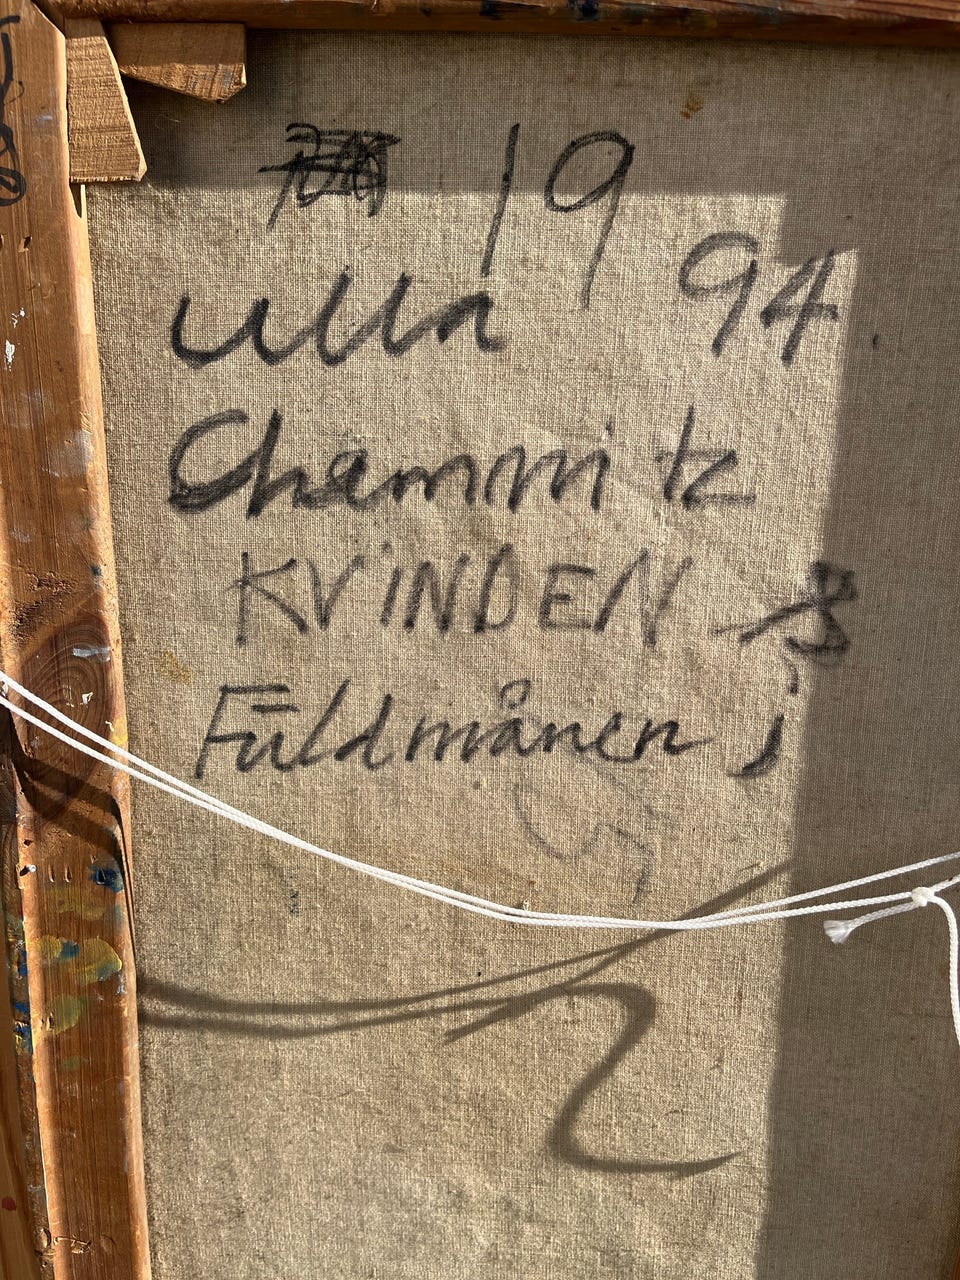 19
94.
Ulla
Chemnitz
KVINDEN &
Fuldmånen